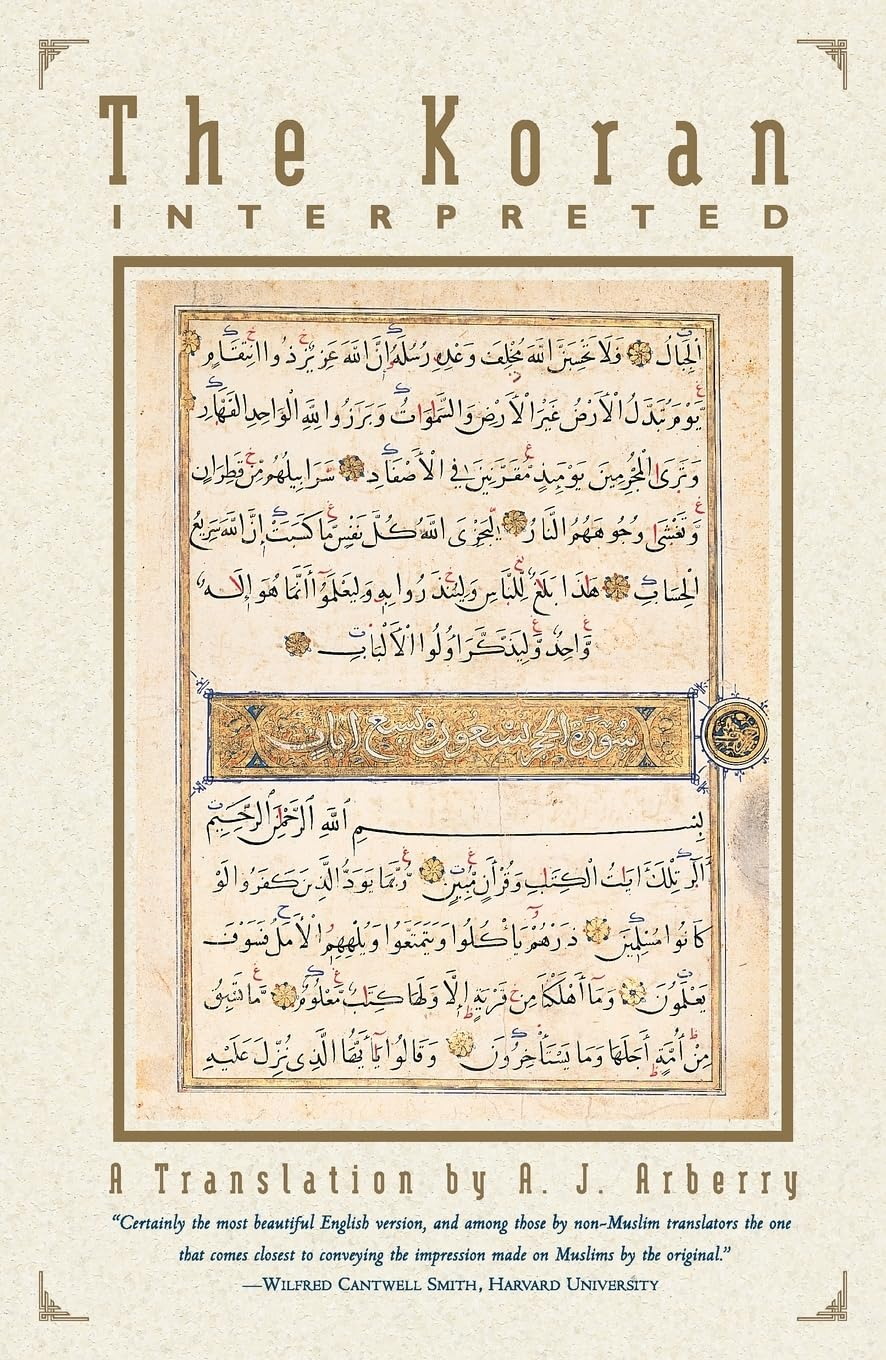 The Koran
INTERPRETED
الْجِبَالُ فَلَا تَحْسَبَنَّ اللَّهَ مُخْلِفَ وَعْدِهِ رُسُلَهُ إِنَّ اللَّهَ عَزِيزٌ ذُو انْتِقَامٍ
يَوْمَ تُبَدَّلُ الْأَرْضُ غَيْرَ الْأَرْضِ وَالسَّمٰوَاتُ وَبَرَزُوا لِلَّهِ الْوَاحِدِ الْقَهَّارِ
وَتَرَى الْمُجْرِمِينَ يَوْمَئِذٍ مُّقَرَّنِينَ فِي الْأَصْفَادِ سَرَابِيلُهُمْ مِّنْ قَطِرَانٍ
وَّتَغْشَى وُجُوهَهُمُ النَّارُ لِيَجْزِيَ اللَّهُ كُلَّ نَفْسٍ مَّا كَسَبَتْ إِنَّ اللَّهَ سَرِيعُ
الْحِسَابِ هٰذَا بَلَاغٌ لِّلنَّاسِ وَلِيُنْذَرُوا بِهِ وَلِيَعْلَمُوا أَنَّمَا هُوَ إِلٰهٌ
وَّاحِدٌ وَّلِيَذَّكَّرَ أُولُوا الْأَلْبَابِ
سورة الحجر تسعون وتسع ايات
بِسْمِ اللَّهِ الرَّحْمٰنِ الرَّحِيمِ
الٓر تِلْكَ اٰيَاتُ الْكِتَابِ وَقُرْاٰنٍ مُّبِينٍ رُّبَمَا يَوَدُّ الَّذِينَ كَفَرُوا لَوْ
كَانُوا مُسْلِمِينَ ذَرْهُمْ يَأْكُلُوا وَيَتَمَتَّعُوا وَيُلْهِهِمُ الْأَمَلُ فَسَوْفَ
يَعْلَمُونَ وَمَا أَهْلَكْنَا مِنْ قَرْيَةٍ إِلَّا وَلَهَا كِتَابٌ مَّعْلُومٌ مَّا تَسْبِقُ
مِنْ أُمَّةٍ أَجَلَهَا وَمَا يَسْتَأْخِرُونَ وَقَالُوا يَا أَيُّهَا الَّذِي نُزِّلَ عَلَيْهِ
A Translation by A. J. Arberry
“Certainly the most beautiful English version, and among those by non-Muslim translators the one
that comes closest to conveying the impression made on Muslims by the original.”
—WILFRED CANTWELL SMITH, HARVARD UNIVERSITY